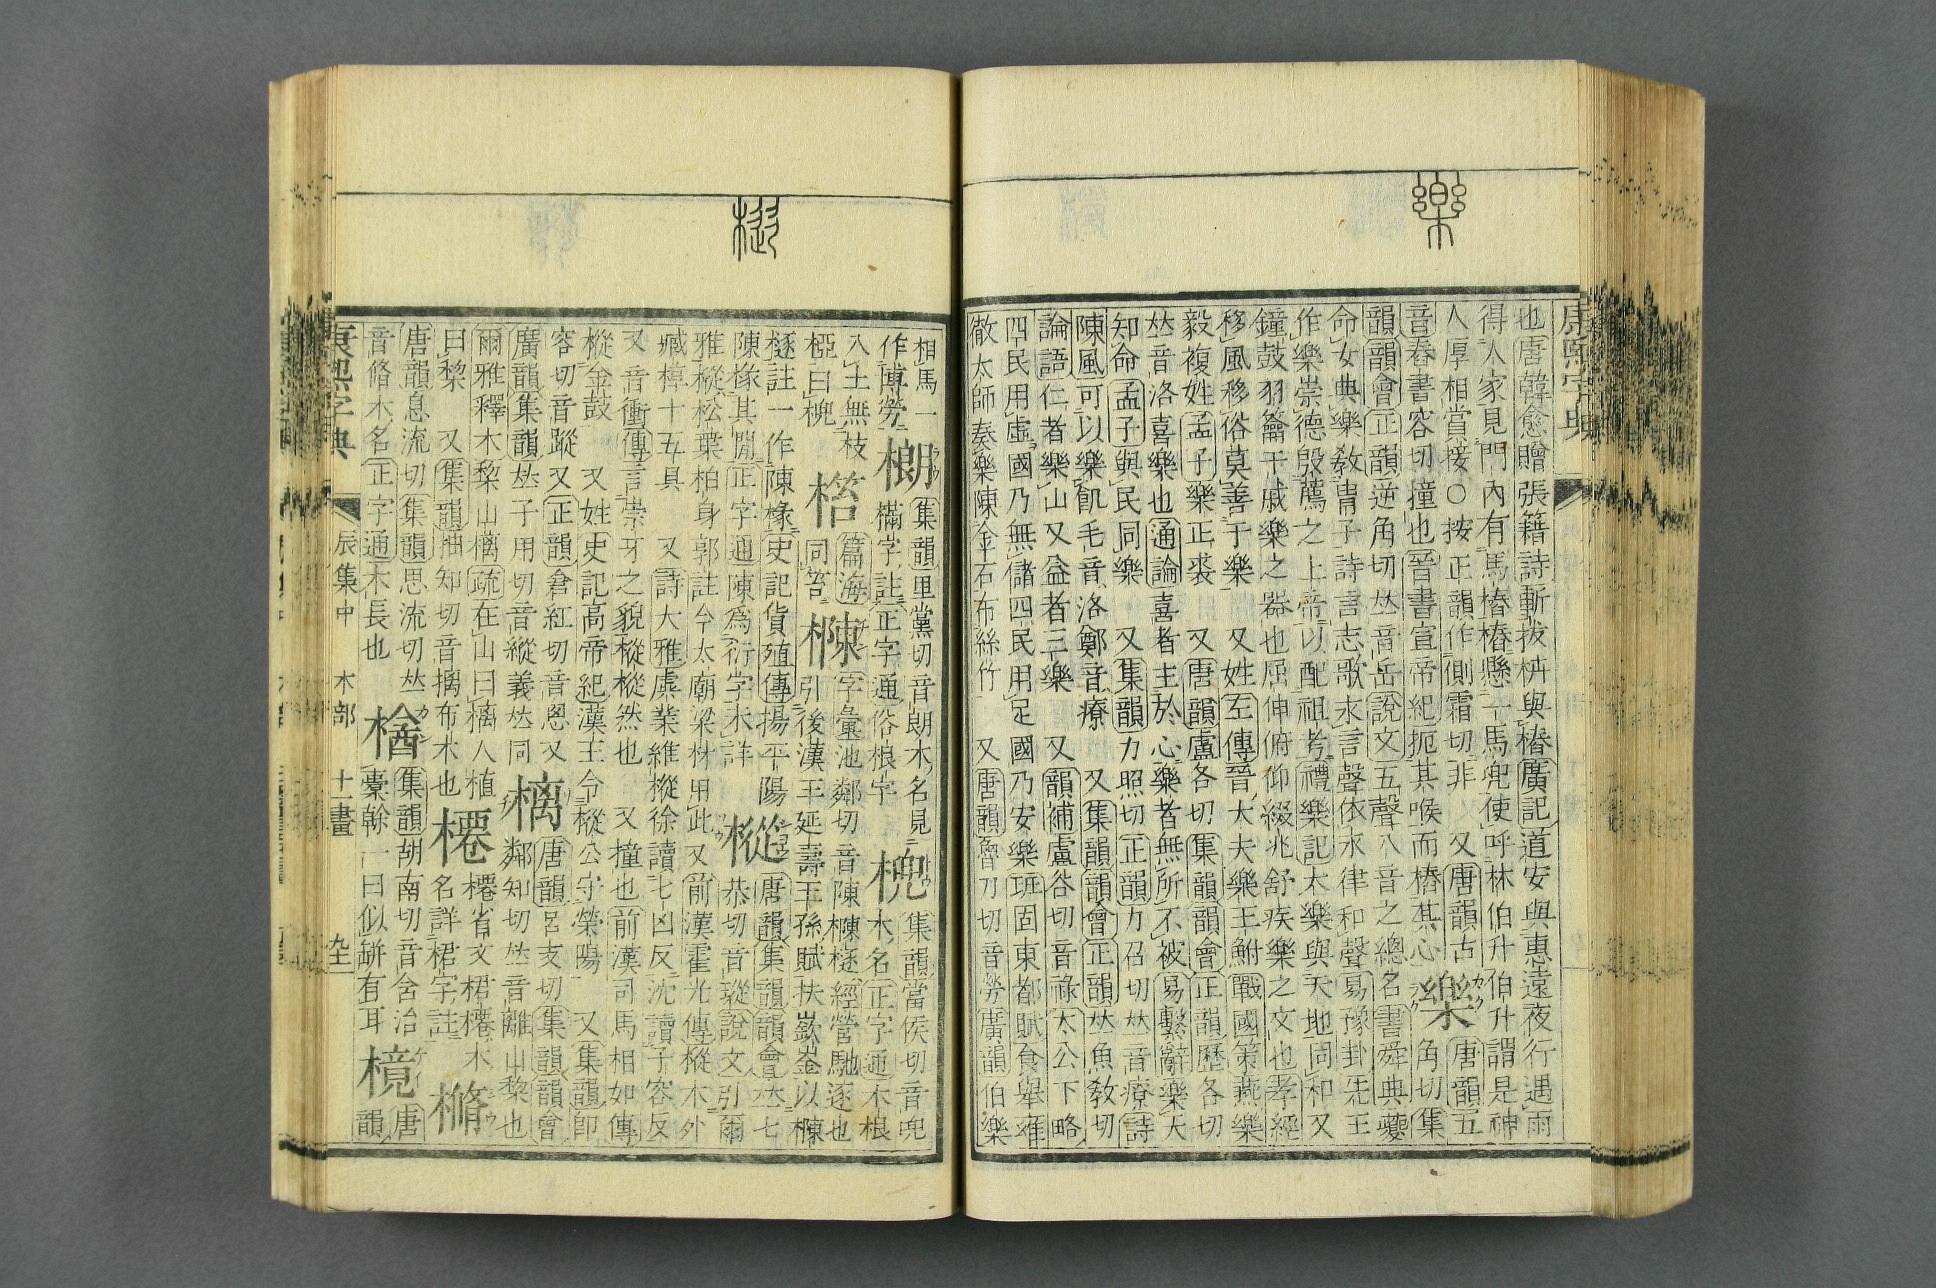 樂
也唐韓愈贈張籍詩斬拔枿與樁廣記道安與惠遠夜行遇雨
得人家見門內有馬樁樁懸一馬兜使呼林伯升伯升謂是神
人厚相賞接○按正韻作側霜切非 又唐韻古
音舂書容切撞也晉書宣帝紀扼其喉而樁其心
樂
唐韻五
角切集
韻韻會正韻逆角切𠀤音岳說文五聲八音之總名書舜典夔
命女典樂敎冑子詩言志歌永言聲依永律和聲易豫卦先王
作樂崇德殷薦之上帝以配祖考禮樂記大樂與天地同和又
鐘鼓羽籥干戚樂之器也屈伸俯仰綴兆舒疾樂之文也孝經
移風移俗莫善于樂 又姓左傳晉大夫樂王鮒戰國策燕樂
毅複姓孟子樂正裘 又唐韻盧各切集韻韻會正韻歷各切
𠀤音洛喜樂也通論喜者主於心樂者無所不被易繫辭樂天
知命孟子與民同樂 又集韻力照切正韻力召切𠀤音療詩
陳風可以樂飢毛音洛鄭音療 又集韻韻會正韻𠀤魚敎切
論語仁者樂山又益者三樂 又韻補盧谷切音祿太公下略
四民用虛國乃無儲四民用足國乃安樂班固東都賦食舉雍
徹太師奏樂陳金石布絲竹 又唐韻魯刀切音勞廣韻伯樂
樅
相馬一
作博勞
㮾
集韻里黨切音朗木名見
樠字註正字通俗桹字
槐
集韻當侯切音兜
木名正字通木根
入土無枝
椏曰槐
㯁
篇海
同䇞
㯤
字彙池鄰切音陳㯤檖經營馳逐也
引後漢王延壽王孫賦扶嶔崟以㯤
檖註一作陳椽史記貨殖傳揚平陽
陳椽其閒正字通陳爲衍字木詳
樅
唐韻集韻韻會𠀤七
恭切音瑽說文引爾
雅樅松葉柏身郭註今太廟梁材用此又前漢霍光傳樅木外
臧椁十五具 又詩大雅虡業維樅徐讀七凶反沈讀子容反
又音衝傳言崇牙之貌樅樅然也 又撞也前漢司馬相如傳
樅金鼓 又姓史記高帝紀漢王令樅公守滎陽 又集韻卽
容切音蹤又正韻倉紅切音悤又
廣韻集韻𠀤子用切音縱義𠀤同
樆
唐韻呂支切集韻韻會
鄰知切𠀤音離山黎也
爾雅釋木黎山樆疏在山曰樆人植
曰黎 又集韻抽知切音摛布木也
櫏
櫏省文桾櫏木
名詳桾字註
樇
唐韻息流切集韻思流切𠀤
音脩木名正字通木長也
㮭
集韻胡南切音含治
橐榦一曰似缾有耳
樈
唐
韻
康熙字典 辰集中 木部 十一畫